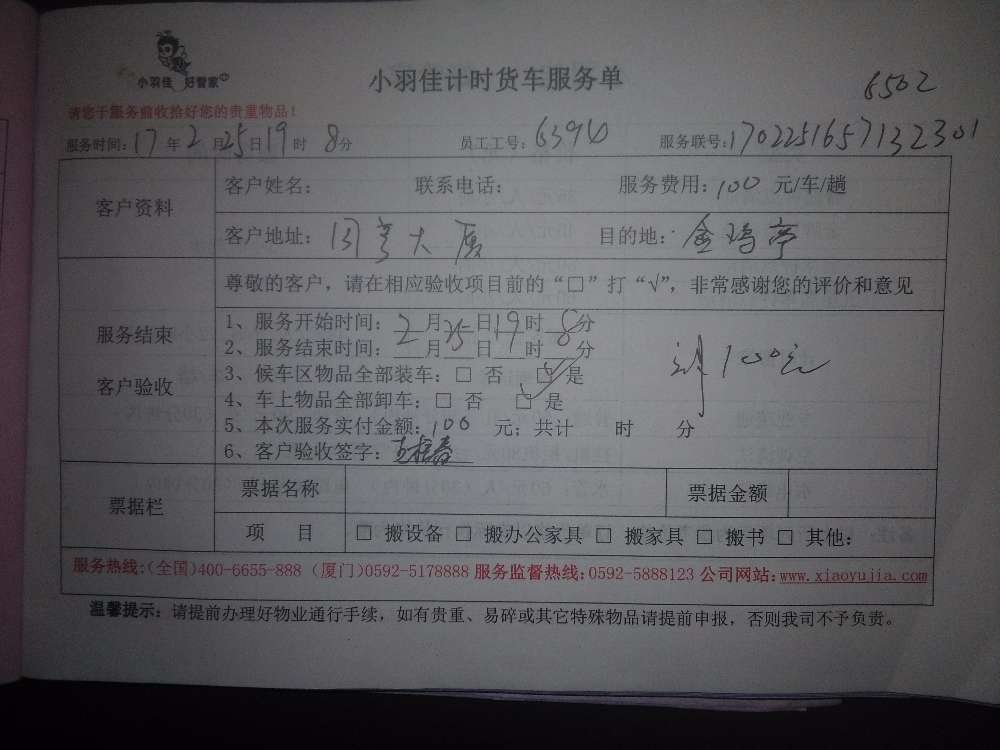 小羽佳 好管家
小羽佳计时货车服务单
6502
请您于服务前收拾好您的贵重物品！
服务时间：17年2月25日19时8分 员工工号：6394 服务联号：170225165713 2301
客户资料
客户姓名： 联系电话： 服务费用：100 元/车/趟
客户地址：闽 大厦 目的地：金鸡亭
尊敬的客户，请在相应验收项目前的“□”打“√”，非常感谢您的评价和意见
服务结束
客户验收
1、服务开始时间：2月25日19时8分
2、服务结束时间：＿月＿日＿时＿分
3、候车区物品全部装车：□ 否 □ 是
4、车上物品全部卸车：□ 否 □ 是
5、本次服务实付金额：100 元；共计 时 分
6、客户验收签字：
100元
票据栏
票据名称 票据金额
项 目 □ 搬设备 □ 搬办公家具 □ 搬家具 □ 搬书 □ 其他：
服务热线：(全国)400-6655-888 (厦门)0592-5178888 服务监督热线：0592-5888123 公司网站：www.xiaoyujia.com
温馨提示：请提前办理好物业通行手续，如有贵重、易碎或其它特殊物品请提前申报，否则我司不予负责。